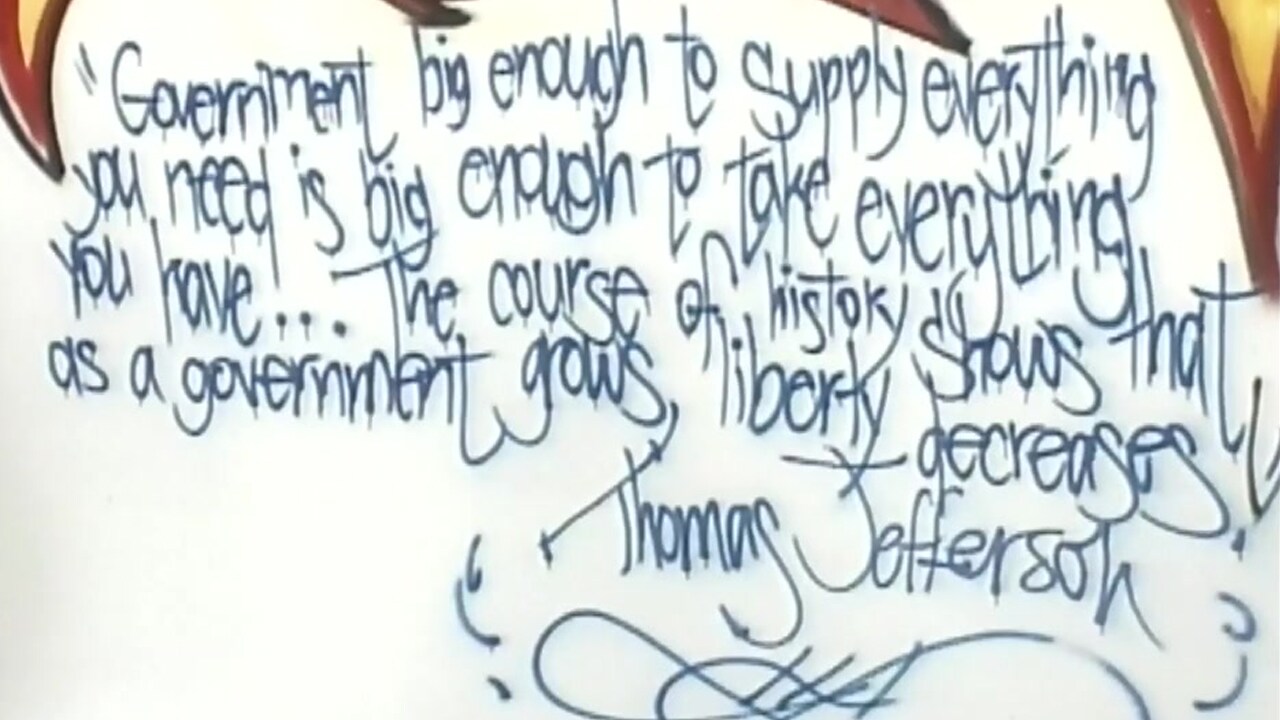 "Government big enough to supply everything
you need is big enough to take everything
you have... The course of history shows that
as a government grows, liberty decreases."
Thomas Jefferson